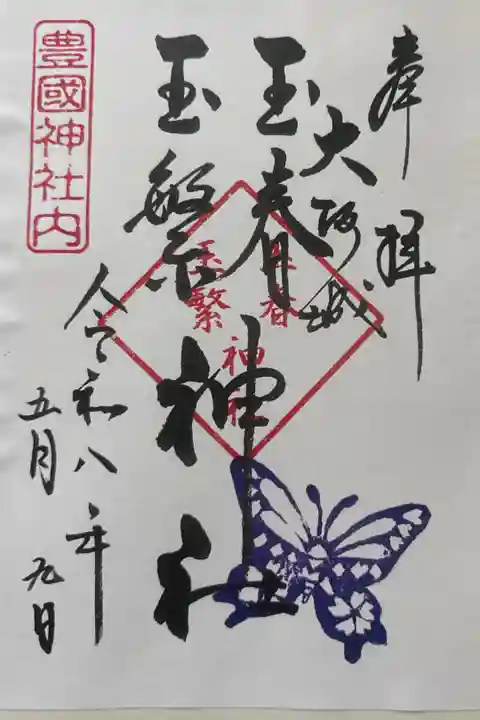 奉拝
大阪城
玉春
玉繁
神社
玉春
玉繁
神社
豊國神社内
令和八年
五月九日